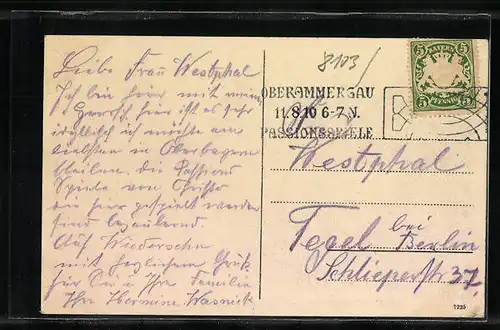 Liebe Frau Westphal
Ich bin hier mit mein
hier ist es sehr
idyllisch ich möchte am
liebsten in Oberbayern
bleiben, die Passions
Spiele von Christo
die hier gespielt werden
sind bezaubernd.
Auf Wiedersehn
mit herzlichem Gruß
für Sie u Ihre Familie
Ihre Hermine Wasnick
8103/
BAYERN
5 5
PFENNIG
OBERAMMERGAU
11.8.10 6-7 N.
PASSIONSSPIELE
Westphal
Tegel bei
Berlin
Schlieperstr 37.
7225